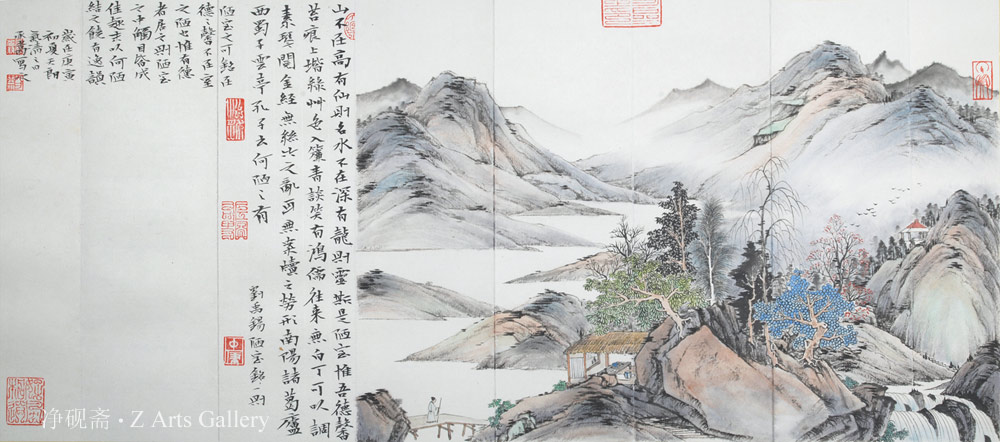 山不在高有仙則名水不在深有龍則靈斯是陋室惟吾德馨
苔痕上堦綠艸色入簾青談笑有鴻儒往來無白丁可以調
素琴閱金經無絲竹之亂耳無案牘之勞形南陽諸葛廬
西蜀子雲亭孔子云何陋之有
劉禹錫陋室銘一則
陋室之可銘在
德之馨不在室
之陋也惟有德
者居之則陋室
之中觸目皆成
佳趣末以何陋
結之饒有逸韻
歲在庚寅
初夏天朗
氣清之日
净砚斋·Z Arts Gallery